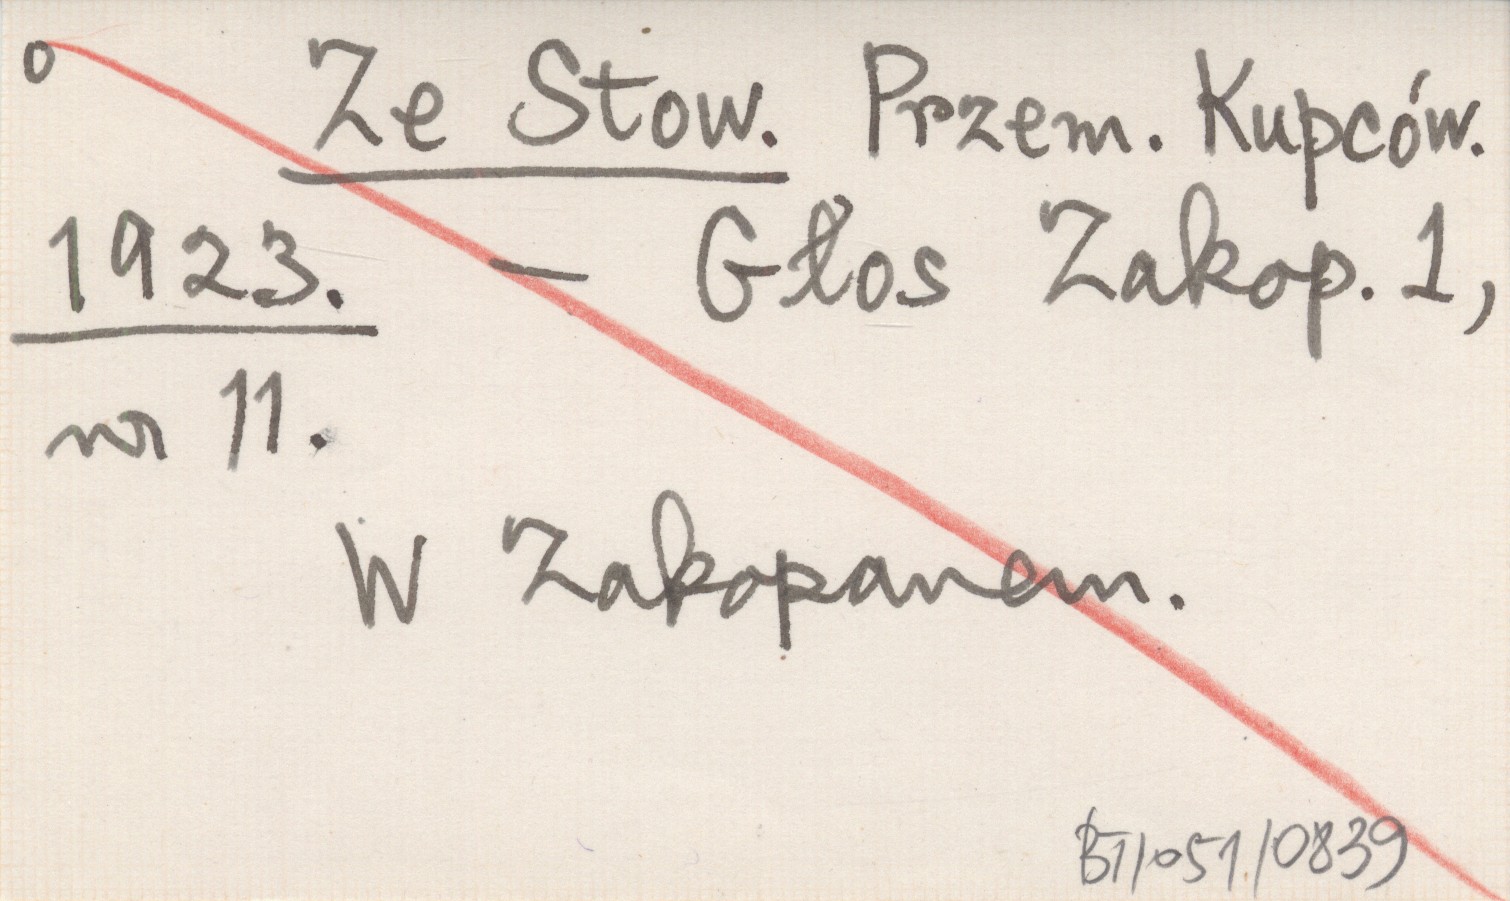 o Ze Stow. Przem. Kupców.
1923. — Głos Zakop. 1,
nr 11.
W Zakopanem.
BT/051/0839